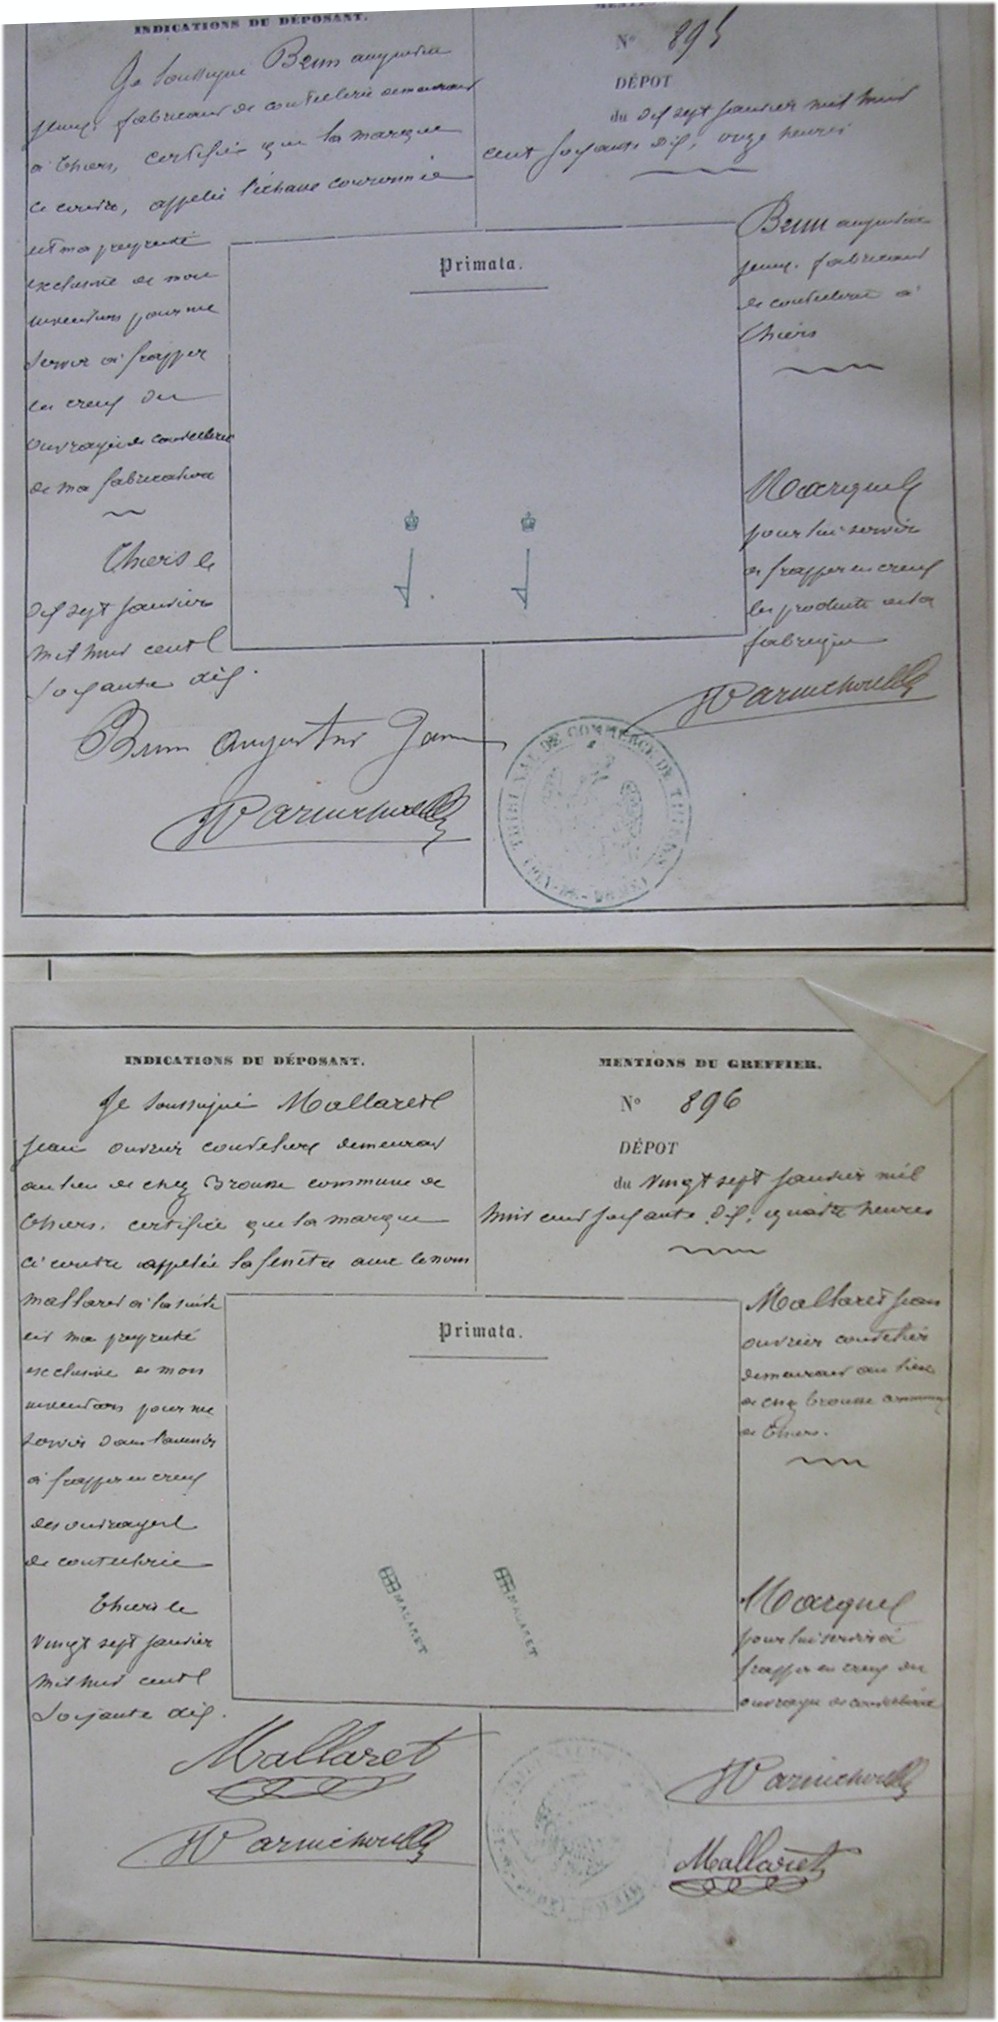 INDICATIONS DU DÉPOSANT.
Je soussigné Brun augustin
jeune, fabricant de coutellerie demeurant
à Thiers, certifie que la marque
ci contre, appelée couronnée
est ma propriété
exclusive de mon
invention pour me
servir à frapper
en creux des
ouvrages de coutellerie
de ma fabrication
Thiers le
dix sept janvier
mil huit cent
soixante dix.
Brun augustin
N° 895
DÉPOT
du dix sept janvier mil huit
cent soixante dix, onze heures
Brun augustin
jeune, fabricant
de coutellerie à
Thiers
Primata.
Marque
pour lui servir
à frapper en creux
les produits de sa
fabrique
TRIBUNAL DE COMMERCE DE THIERS
(PUY-DE-DÔME)
INDICATIONS DU DÉPOSANT.
Je soussigné Mallaret
jean ouvrier coutelier demeurant
au lieu de chez Brousse commune de
Thiers, certifie que la marque
ci contre appelée la fenêtre avec le nom
mallaret à la suite
est ma propriété
exclusive de mon
invention pour me
servir dans l'avenir
à frapper en creux
des ouvrages
de coutellerie
Thiers le
vingt sept janvier
mil huit cent
soixante dix.
Mallaret
MENTIONS DU GREFFIER.
N° 896
DÉPOT
du vingt sept janvier mil
huit cent soixante dix, quatre heures
Mallaret jean
ouvrier coutelier
demeurant au lieu
de chez brousse commune
de Thiers.
Primata.
MALARET
MALARET
Marque
pour lui servir à
frapper en creux des
ouvrages de coutellerie
Mallaret